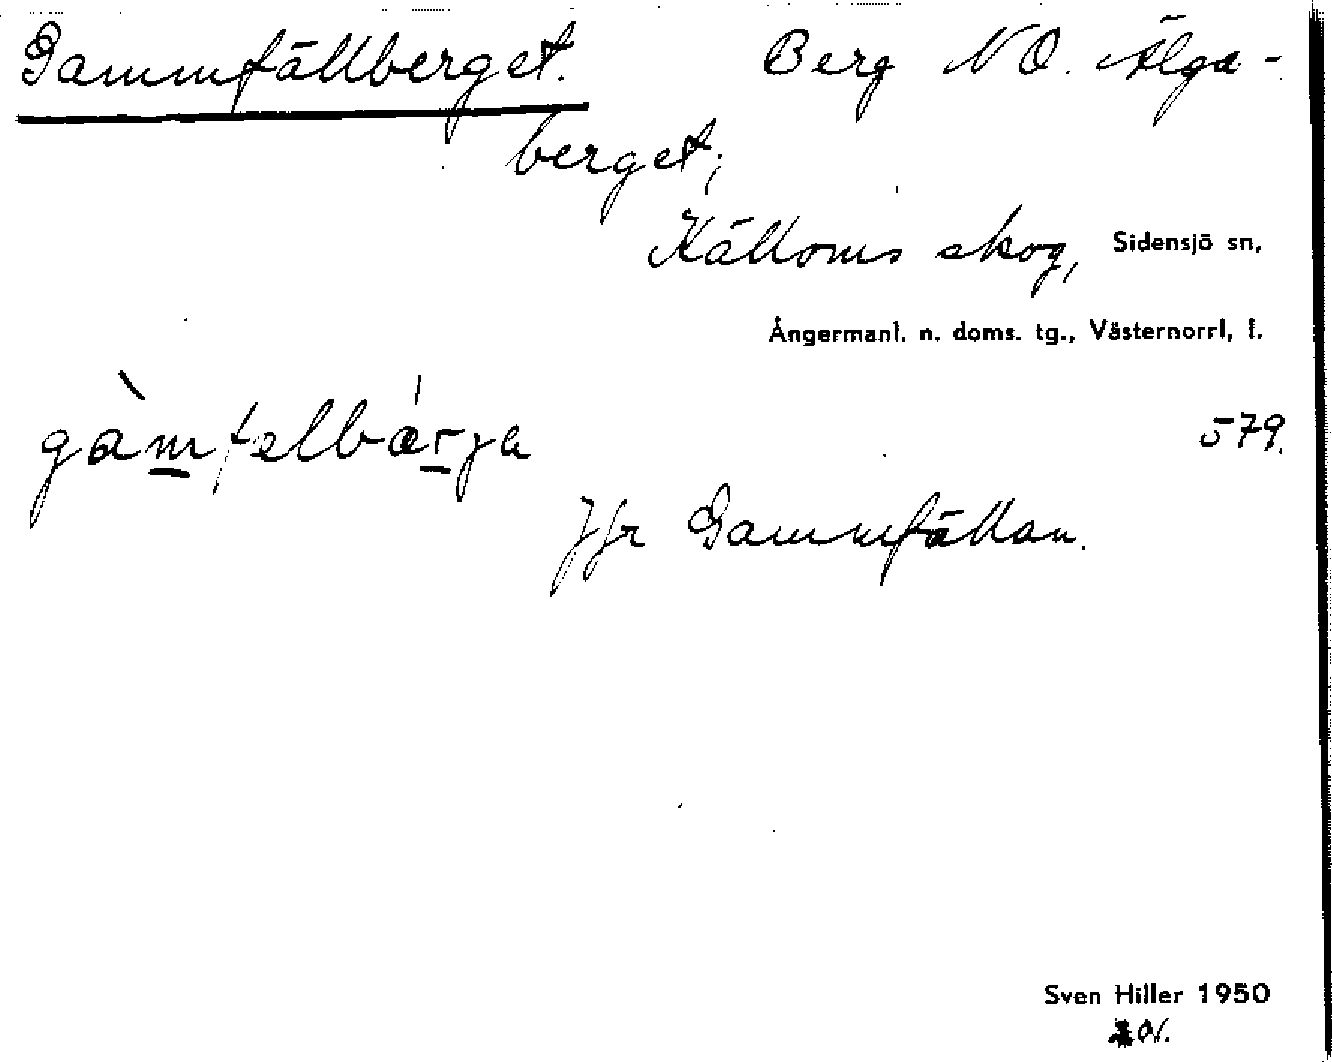 Gammfällberget. Berg NO. Älga-
berget;
Källoms skog, Sidensjö sn,
Ångermanl. n. doms. tg., Västernorrl. l.
gàmfelbárja 579.
Jfr Gammfällan.
Sven Hiller 1950